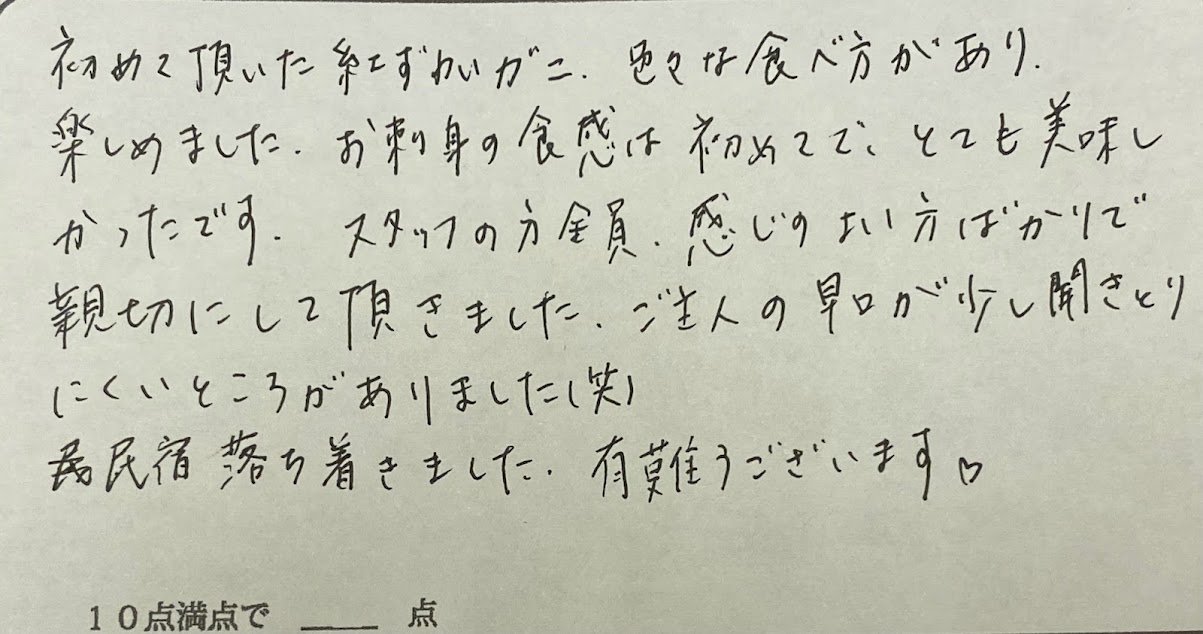 初めて頂いた紅ずわいがニ、色々な食べ方があり、
楽しめました。お刺身の食感は初めてで、とても美味し
かったです。 スタッフの方全員、感じのよい方ばかりで
親切にして頂きました。ご主人の早口が少し聞きとり
にくいところがありました(笑)
民宿落ち着きました。有難うございます♡
10点満点で ____ 点